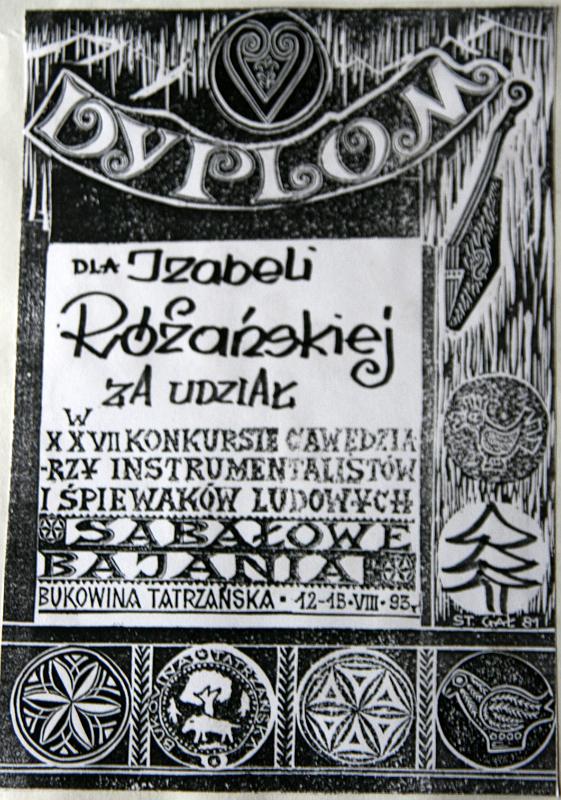 DYPLOM
DLA Izabeli
Różańskiej
ZA UDZIAŁ
W
XXVII KONKURSIE GAWĘDZIA-
-RZY INSTRUMENTALISTÓW
I ŚPIEWAKÓW LUDOWYCH
SABAŁOWE
BAJANIA
BUKOWINA TATRZAŃSKA · 12-15-VIII-93r.
ST. GAŁ 81
BUKOWINA TATRZAŃSKA